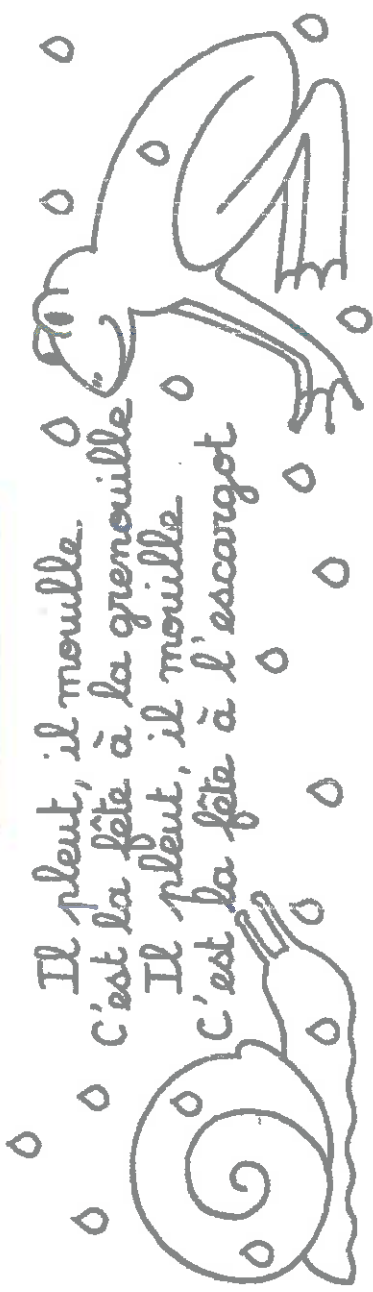 Il pleut, il mouille.
C'est la fête à la grenouille
Il pleut, il mouille
C'est la fête à l'escargot